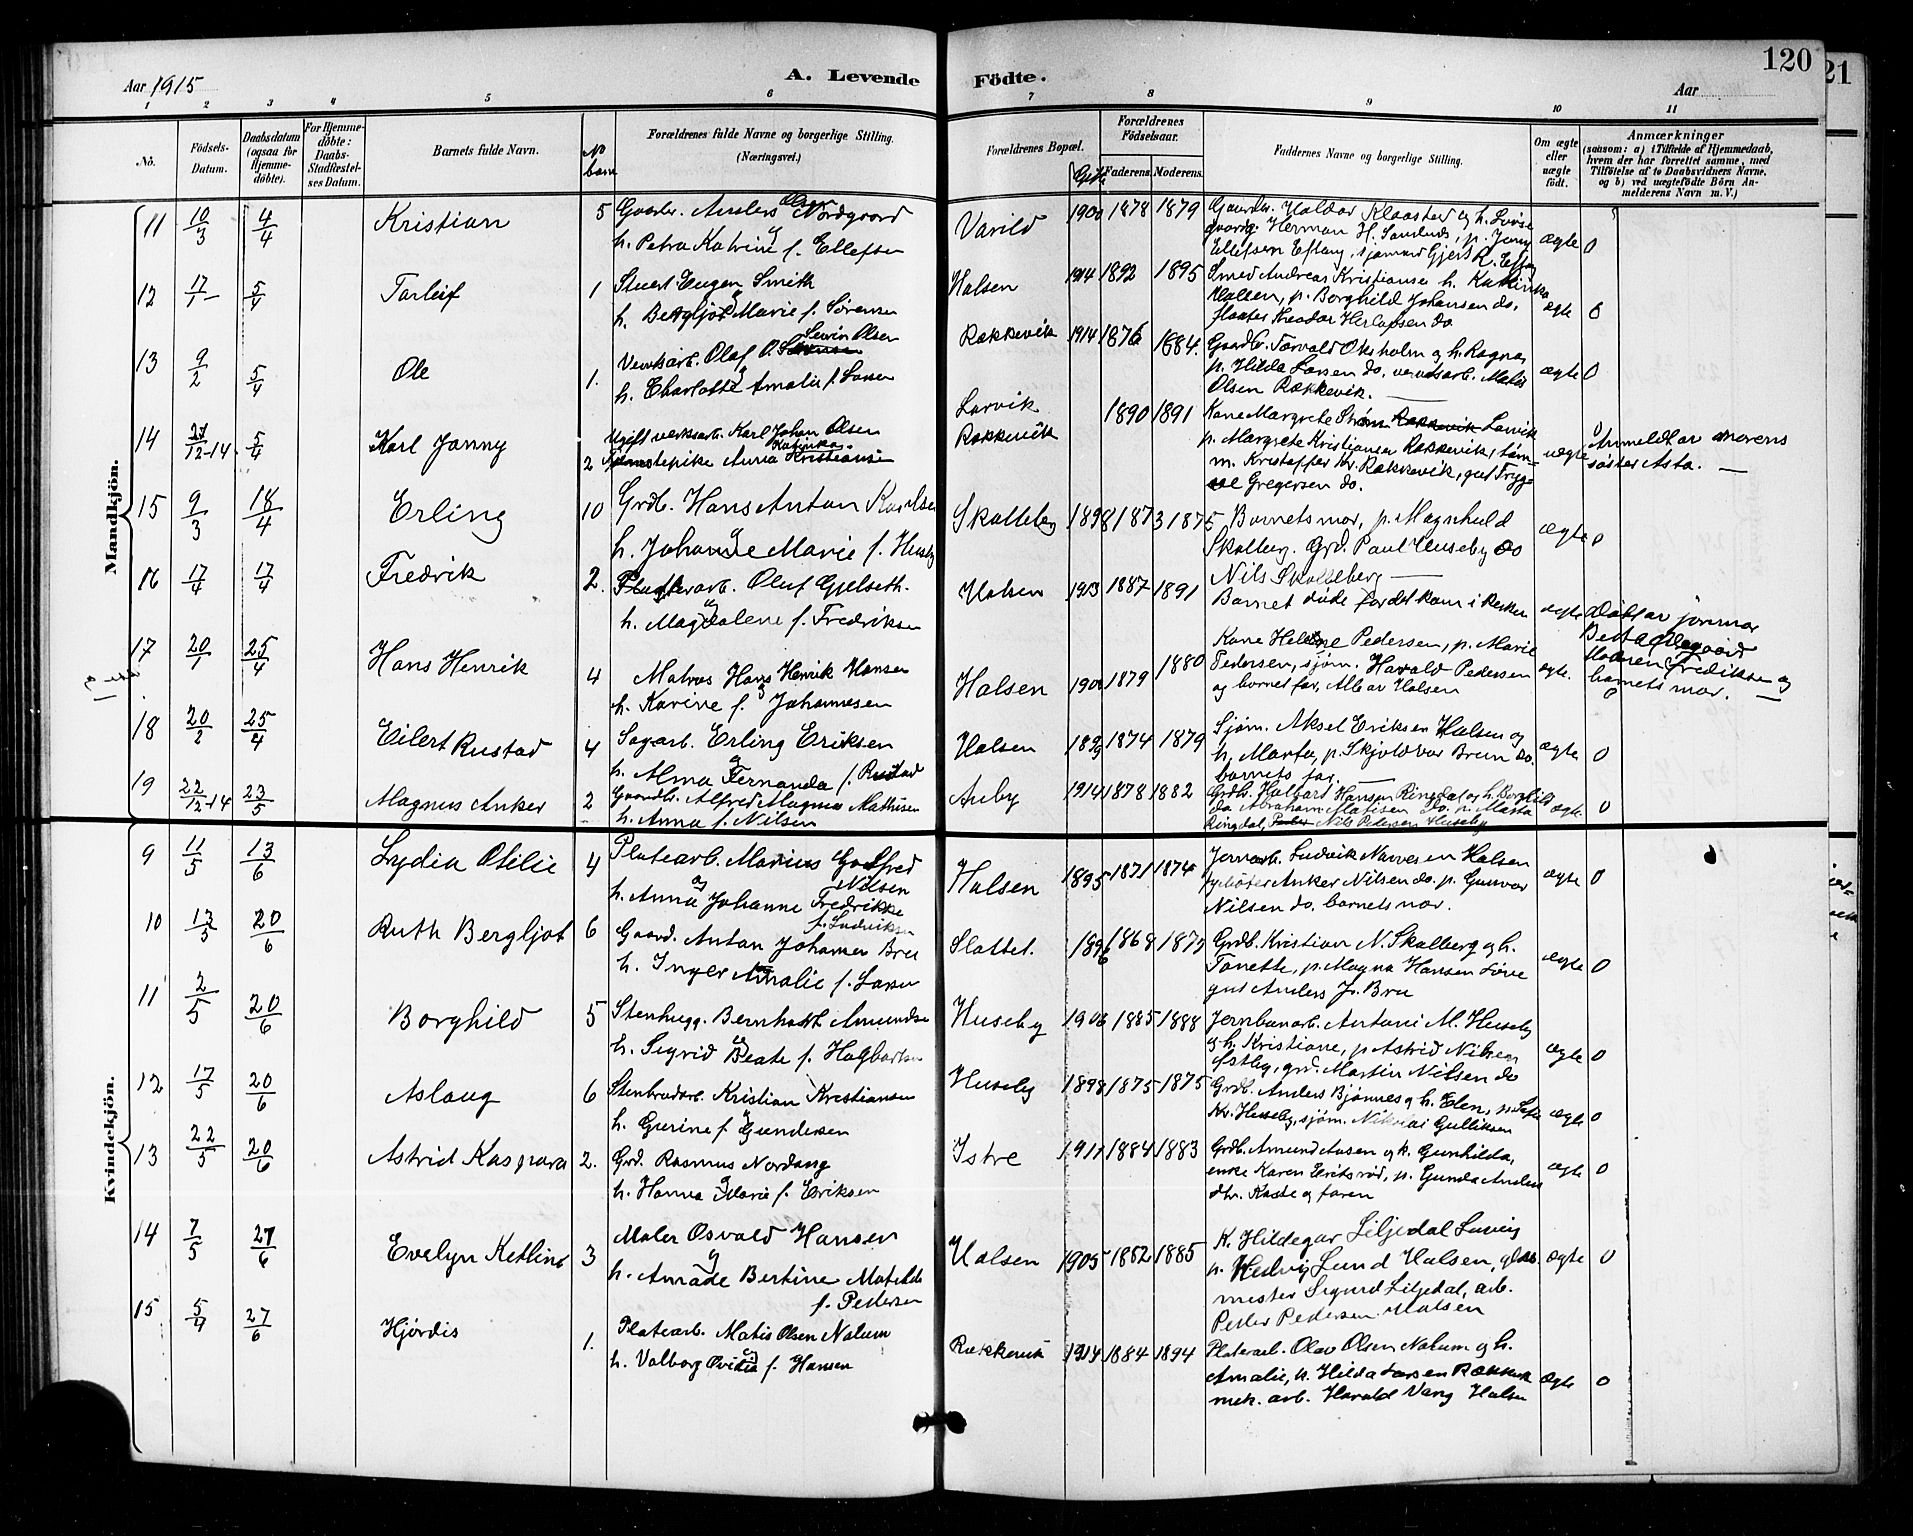 120
21
Aar 1915
A. Levende
Födte.
Aar
1 2 3 4 5 6 7 8 9 10 11
No.
Födsels-Datum.
Daabsdatum (ogsaa for Hjemme-döbte).
For Hjemme-döbte: Daabs-Stadfæstel-ses Datum.
Barnets fulde Navn.
No barn
Forældrenes fulde Navne og borgerlige Stilling.
(Næringsvei.)
Forældrenes Bopæl.
Gift
Forældrenes Födselsaar.
Faderens. Moderens.
Faddernes Navne og borgerlige Stilling.
Om ægte eller uægte födt.
Anmærkninger
(saasom: a) i Tilfælde af Hjemmedaab, hvem der har forrettet samme, med Tilföielse af to Daabsvidners Navne, og b) ved uægtefödte Börn An-melderens Navn m. V.)
Mandkjön.
11 10/3 4/4 Kristian 5 Gaardbr. Anders Olsen Nordgaard
h. Petra Katrine f. Ellefsen
Varild 1900 1878 1879
Gaardbr. Haldor Klaastad og h. Lovise
Herman H.
Ellefsen Eftang, sjømand Gjert R. Eftang
ægte 0
12 17/1 5/4 Torleif 1 Stuert Eugen Smith
h. Bergljot Marie f. Sørensen
Halsen 1914 1892 1895
Smed Andreas Kristiansen h. Katinka
Halsen, p. Borghild Johansen do.
Theodor do
ægte 0
13 9/2 5/4 Ole 1. Verksarb. Olaf O. Sevrin Olsen
h. Charlotte Amalie f. Larsen
Rækkevik 1914 1876 1884.
Gaardb. Torvald Oksholm og h. Ragna
p. Hilda Larsen do. verksarb. Matis
Olsen Rækkevik.
ægte 0
14 27/12-14 5/4 Karl Jonny 2 Ugift verksarb. Karl Johan Olsen
Tjenestepike Anna Katinka Kristiansen
Larvik
Rækkevik
1890 1891
Kone Margrete Strøm Rækkevik Larvik
p. Margrete Kristiansen Rækkevik, tøm-
m. Kristoffer Kr. Rækkevik, gut Tryg-
ve Gregersen do.
uægte
0
Anmeldt av morens
søster Asta.
15 9/3 18/4 Erling 10 Grdb. Hans Anton Karlsen
h. Johanne Marie f. Huseby
Skalleberg 1898 1873 1875
Barnets mor, p. Magnhild
Skalberg. Grd. Paul Huseby do
Nils Skalleberg
ægte 0
16 17/4 17/4 Fredrik 2. Oluf Gjelseth.
h. Magdalene f. Fredriksen
Halsen 1913 1887 1891
Barnet døde før det kom i kirken
ægte
Døbt av jormor
Berta
Maren Fredriksen og
barnets mor.
17 20/1 25/4 Hans Henrik 4 Matros Hans Henrik Hansen
h. Karine f. Johannesen
Halsen 1901 1879 1880
Kone Helene Pedersen, p. Marie
Pedersen, sjøm. Harald Pedersen
og barnet far, Alle av Halsen
ægte. 0
18 20/2 25/4 Eilert Rustad 4 Sagarb. Erling Eriksen
h. Alma Fernanda f. Rustad
Halsen 1899 1874 1879
Sjøm. Aksel Eriksen Halsen og
h. Marta, p. Skjoldvor Brun do.
barnets far.
ægte 0
19 22/12-14 23/5 Magnus Anker 2 Gaardbr. Alfred Magnus Mathisen
h. Anna f. Nilsen
Auby 1914 1878 1882
Grdb. Halbart Hansen Ringdal og h. Borghild
do Abraham Matisen do. p. Marta
Ringdal, Peder Nils Pedersen Huseby
ægte 0
Kvindekjön.
9 11/5 13/6 Lydia Otilie 4 Platearb. Marius Godtfred
Nilsen
h. Anna Johanne Fredrikke
f. Ludviksen
Halsen 1895 1871 1874
Jernarb. Ludvik Narvesen Halsen
Anker Nilsen do. p. Gunvor
Nilsen do. barnets mor.
ægte 0
10 13/5 20/6 Ruth Bergljot 6 Gaard. Anton Johannes Bru
h. Inger Amalie f. Larsen
Slottet. 1896 1868 1877
Grdb. Kristian N. Skalberg og h.
Tonette, p. Magna Hansen Løve
gut Anders J. Bru
ægte 0
11 2/5 20/6 Borghild 5 Stenhugg. Bernhard Amundsen
h. Sigrid Beate f. Hagbartsen
Huseby 1906 1885 1888
Jernbanarb. Antoni M. Huseby
og h. Kristiane, p Astrid Nilsen
Østby, grd. Martin Nilsen do
ægte 0
12 17/5 20/6 Aslaug 6 Stenbrudarb. Kristian Kristiansen
h. Gurine f. Gundersen
Huseby 1898 1875 1875
Grdb. Anders Bjønnes og h. Elen, p. Sofie
Kr. Huseby, sjøm. Nikolai Gulliksen
ægte 0
13 22/5 20/6 Astrid Kaspara 2. Grd. Rasmus Nordang
h. Hanna Marie f. Eriksen
Istre 1911 1884 1883
Grdb. Amund Aasen og h. Gunhilda,
enke Karen Eriksrød, p. Gunda Anders
dtr. Kaste og faren
ægte 0
14 7/5 27/6 Evelyn Ketline 3 Maler Osvald Hansen
h. Amade Bertine Matilde
f. Pedersen
Halsen 1905 1882 1885
K. Hildegar Liljedal Larvig
p. Hedvig Lund Halsen, glas-
mester Sigurd Liljedal, arb.
Peder Pedersen Halsen
ægte 0
15 5/4 27/6 Hjørdis 1. Platearb. Matis Olsen Nalum
h. Valborg Ovidia f. Hansen
Rækkevik 1914 1884 1894
Platearb. Olav Olsen Nalum og h.
Amalie, p. Hilda Larsen Rækkevik
mek. arb. Harald Vang Halsen
ægte 0